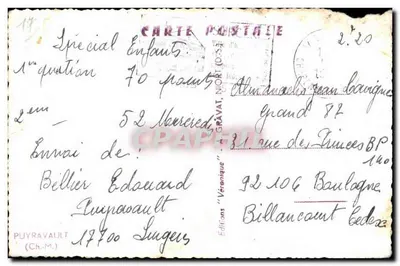 17
CARTE POSTALE
2.20
Spécial Enfants
1re question 70 points
2em 52 Mercredi
Envoi de :
Bellier Edouard
Puyravault
17700 Surgères
PUYRAVAULT
(Ch.-M.)
Editions "Véronique" - GRAVAT, NIORT (D.-S.)
Almanach Jean Lavigne
Grand 87
31 rue des Princes BP
140
92106 Boulogne
Billancourt Cedex